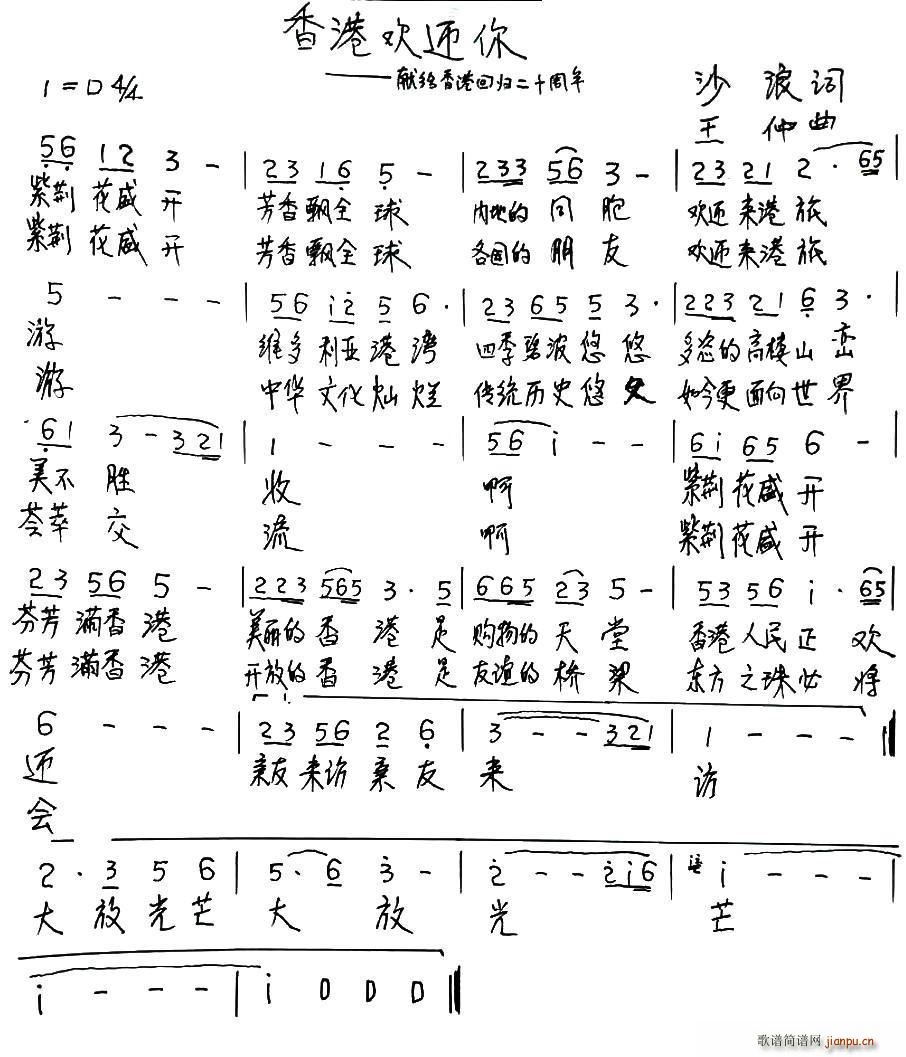 香港欢迎你
——献给香港回归二十周年
1=D 4/4
沙浪词
王仲曲
56 12 3 - | 23 16 5 - | 233 56 3 - | 23 21 2 · 65
紫荆花盛开 芳香飘全球 内地的同胞 欢迎来港旅
紫荆花盛开 芳香飘全球 各国的朋友 欢迎来港旅
5 - - - | 56 i2 5 6 · | 23 65 5 3 · | 223 21 6 3 ·
游 维多利亚港湾 四季碧波悠悠 多姿的高楼山峦
游 中华文化灿烂 传统历史悠久 如今更面向世界
61 3 - 321 | 1 - - - | 56 i - - | 6i 65 6 -
美不胜 收 啊 紫荆花盛开
荟萃交 流 啊 紫荆花盛开
23 56 5 - | 223 565 3 · 5 | 665 23 5 - | 53 56 i · 65
芬芳满香港 美丽的香港是 购物的天堂 香港人民正欢
芬芳满香港 开放的香港是 友谊的桥梁 东方之珠必将
1.
6 - - - | 23 56 2 6 | 3 - - 321 | 1 - - -
迎 亲友来访亲友 来 访
会
2 · 3 5 6 | 5 · 6 3 - | 2 - - 2i6 | i - - -
大放光芒 大放 光 芒
i - - - | i 0 0 0
歌谱简谱网
jianpu.cn